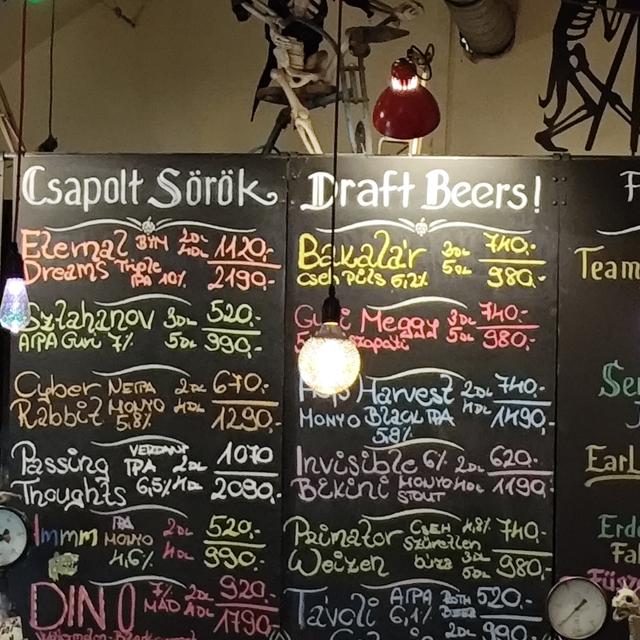 Csapolt Sörök
Eternal BTN 2DL 1120,-
Dreams Triple IPA 10% 4DL 2190,-
Szlahanov 3DL 520,-
APA Guri 7% 5DL 990,-
Cyber NEIPA 2DL 670,-
Rabbit MONYO 5,8% 4DL 1290,-
Passing VERDANT IPA 2DL 1070
Thoughts 6,5% 4DL 2090,-
Immm IPA MONYO 2DL 520,-
4,6% 4DL 990,-
DINO 7% 2DL 920,-
MAD 4DL 1790,-
Draft Beers!
Bakalár 3DL 740,-
Cseh Pils 5DL 980,-
Meggy 3DL 740,-
5DL 980,-
Harvest 2DL 740,-
MONYO Black IPA 4DL 1490,-
5,8%
Invisible 6% 2DL 620,-
Bikini MONYO STOUT 4DL 1190,-
Primator CSEH 4,8% 740,-
Weizen Szűretlen búza 3DL 5DL 980,-
Távoli APA 520,-
6,1% 2DL 990,-
Team
Earl